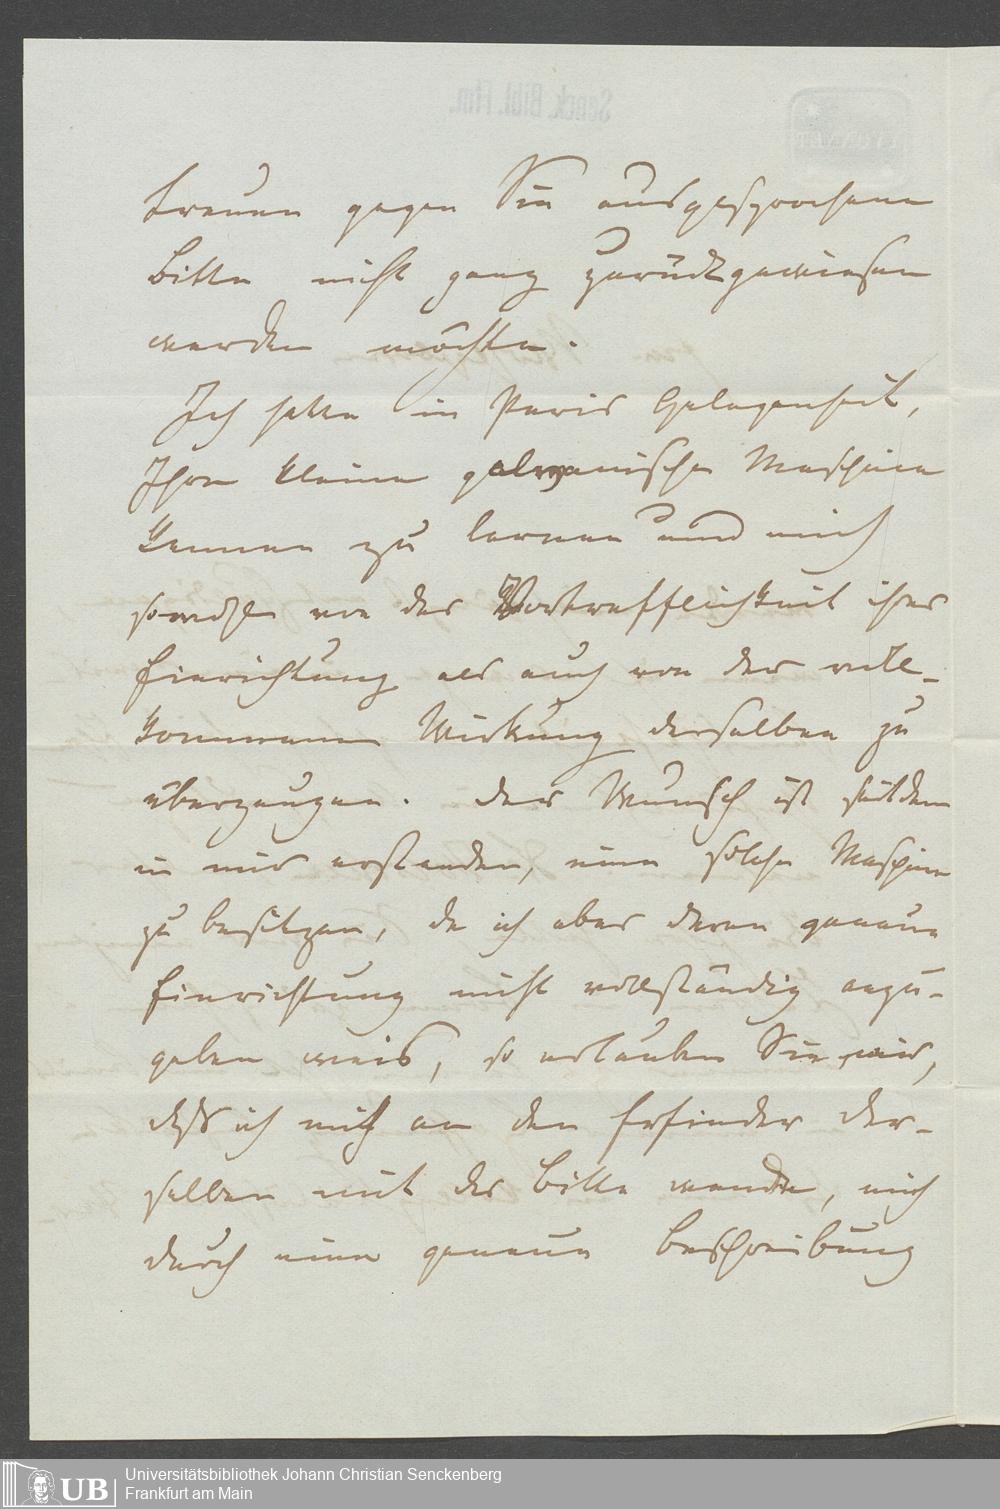 trauen gegen Sie ausgesprochene
Bitte nicht ganz zurückgewiesen
werden möchte.
Ich hatte in Paris Gelegenheit,
Ihre kleine galvanische Maschine
kennen zu lernen und mich
sowohl von der Vortrefflichkeit ihrer
Einrichtung als auch von der voll-
kommenen Wirkung derselben zu
überzeugen. Der Wunsch ist seitdem
in mir erstanden, eine solche Maschine
zu besitzen, da ich aber deren genaue
Einrichtung nicht vollständig anzu-
geben weis, so erlauben Sie mir,
daß ich mich an den Erfinder der-
selben mit der Bitte wende, mich
durch eine genaue Beschreibung
Senck. Bibl. Ffm.
UB
Universitätsbibliothek Johann Christian Senckenberg
Frankfurt am Main